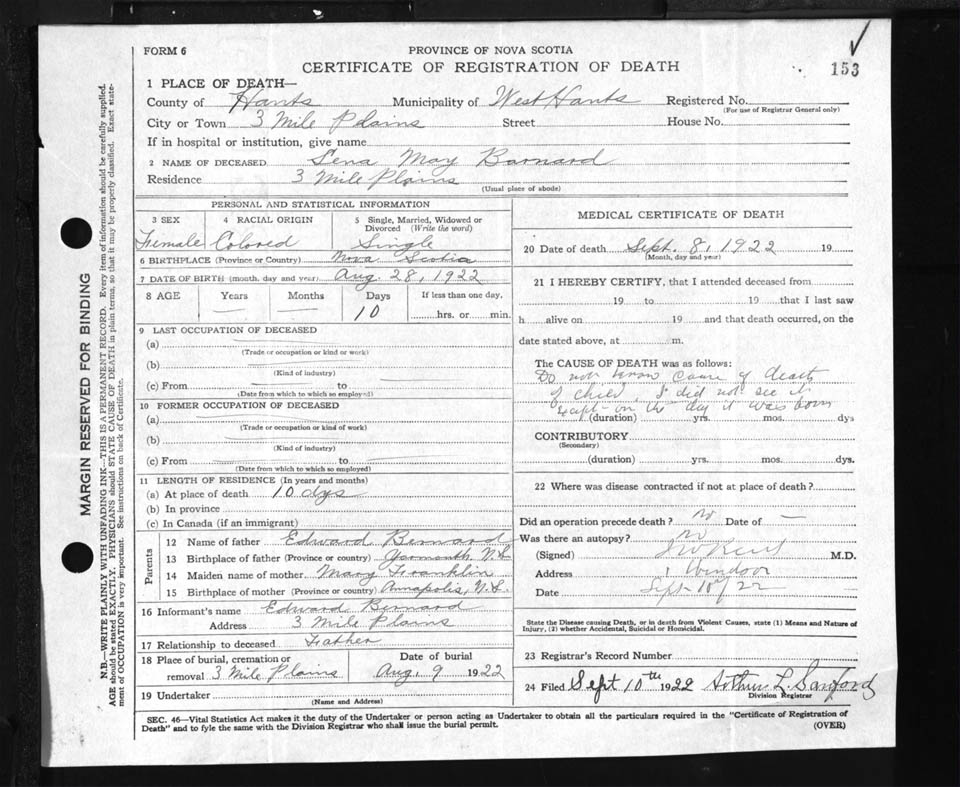 FORM 6
PROVINCE OF NOVA SCOTIA
CERTIFICATE OF REGISTRATION OF DEATH
153
1 PLACE OF DEATH—
County of Hants Municipality of West Hants Registered No.
(For use of Registrar General only)
City or Town 3 Mile Plains Street House No.
If in hospital or institution, give name
2 NAME OF DECEASED Lena May Barnard
Residence 3 Mile Plains
(Usual place of abode)
PERSONAL AND STATISTICAL INFORMATION
3 SEX 4 RACIAL ORIGIN 5 Single, Married, Widowed or Divorced (Write the word)
Female Colored Single
6 BIRTHPLACE (Province or Country) Nova Scotia
7 DATE OF BIRTH (month, day and year) Aug. 28, 1922
8 AGE Years Months Days If less than one day,
— — 10 hrs. or min.
9 LAST OCCUPATION OF DECEASED
(a)
(Trade or occupation or kind or work)
(b)
(Kind of industry)
(c) From to
(Date from which to which so employed)
10 FORMER OCCUPATION OF DECEASED
(a)
(Trade or occupation or kind of work)
(b)
(Kind of industry)
(c) From to
(Date from which to which so employed)
11 LENGTH OF RESIDENCE (In years and months)
(a) At place of death 10 dys
(b) In province
(c) In Canada (if an immigrant)
Parents
12 Name of father Edward Bernard
13 Birthplace of father (Province or country) Yarmouth, N.S.
14 Maiden name of mother Mary Franklin
15 Birthplace of mother (Province or country) Annapolis, N.S.
16 Informant's name Edward Bernard
Address 3 Mile Plains
17 Relationship to deceased Father
18 Place of burial, cremation or removal 3 Mile Plains Date of burial Aug. 9 1922
19 Undertaker
(Name and Address)
MEDICAL CERTIFICATE OF DEATH
20 Date of death Sept. 8, 1922 19
(Month, day and year)
21 I HEREBY CERTIFY, that I attended deceased from
19 to 19 that I last saw
h alive on 19 and that death occurred, on the
date stated above, at m.
The CAUSE OF DEATH was as follows:
Do not know cause of death
of child, I did not see it
except on the day it was born
(duration) yrs. mos. dys
CONTRIBUTORY
(Secondary)
(duration) yrs. mos. dys.
22 Where was disease contracted if not at place of death?
Did an operation precede death? no Date of —
Was there an autopsy? no
(Signed) M.D.
Address Windsor
Date Sept 10/22
State the Disease causing Death, or in death from Violent Causes, state (1) Means and Nature of
Injury, (2) whether Accidental, Suicidal or Homicidal.
23 Registrar's Record Number
24 Filed Sept 10th 1922 Arthur L. Sanford
Division Registrar
SEC. 46—Vital Statistics Act makes it the duty of the Undertaker or person acting as Undertaker to obtain all the particulars required in the "Certificate of Registration of
Death" and to fyle the same with the Division Registrar who shall issue the burial permit.
(OVER)
MARGIN RESERVED FOR BINDING
N.B.—WRITE PLAINLY WITH UNFADING INK—THIS IS A PERMANENT RECORD. Every item of information should be carefully supplied.
AGE should be stated EXACTLY. PHYSICIANS should STATE CAUSE OF DEATH in plain terms, so that it may be properly classified. Exact state-
ment of OCCUPATION is very important. See instructions on back of Certificate.